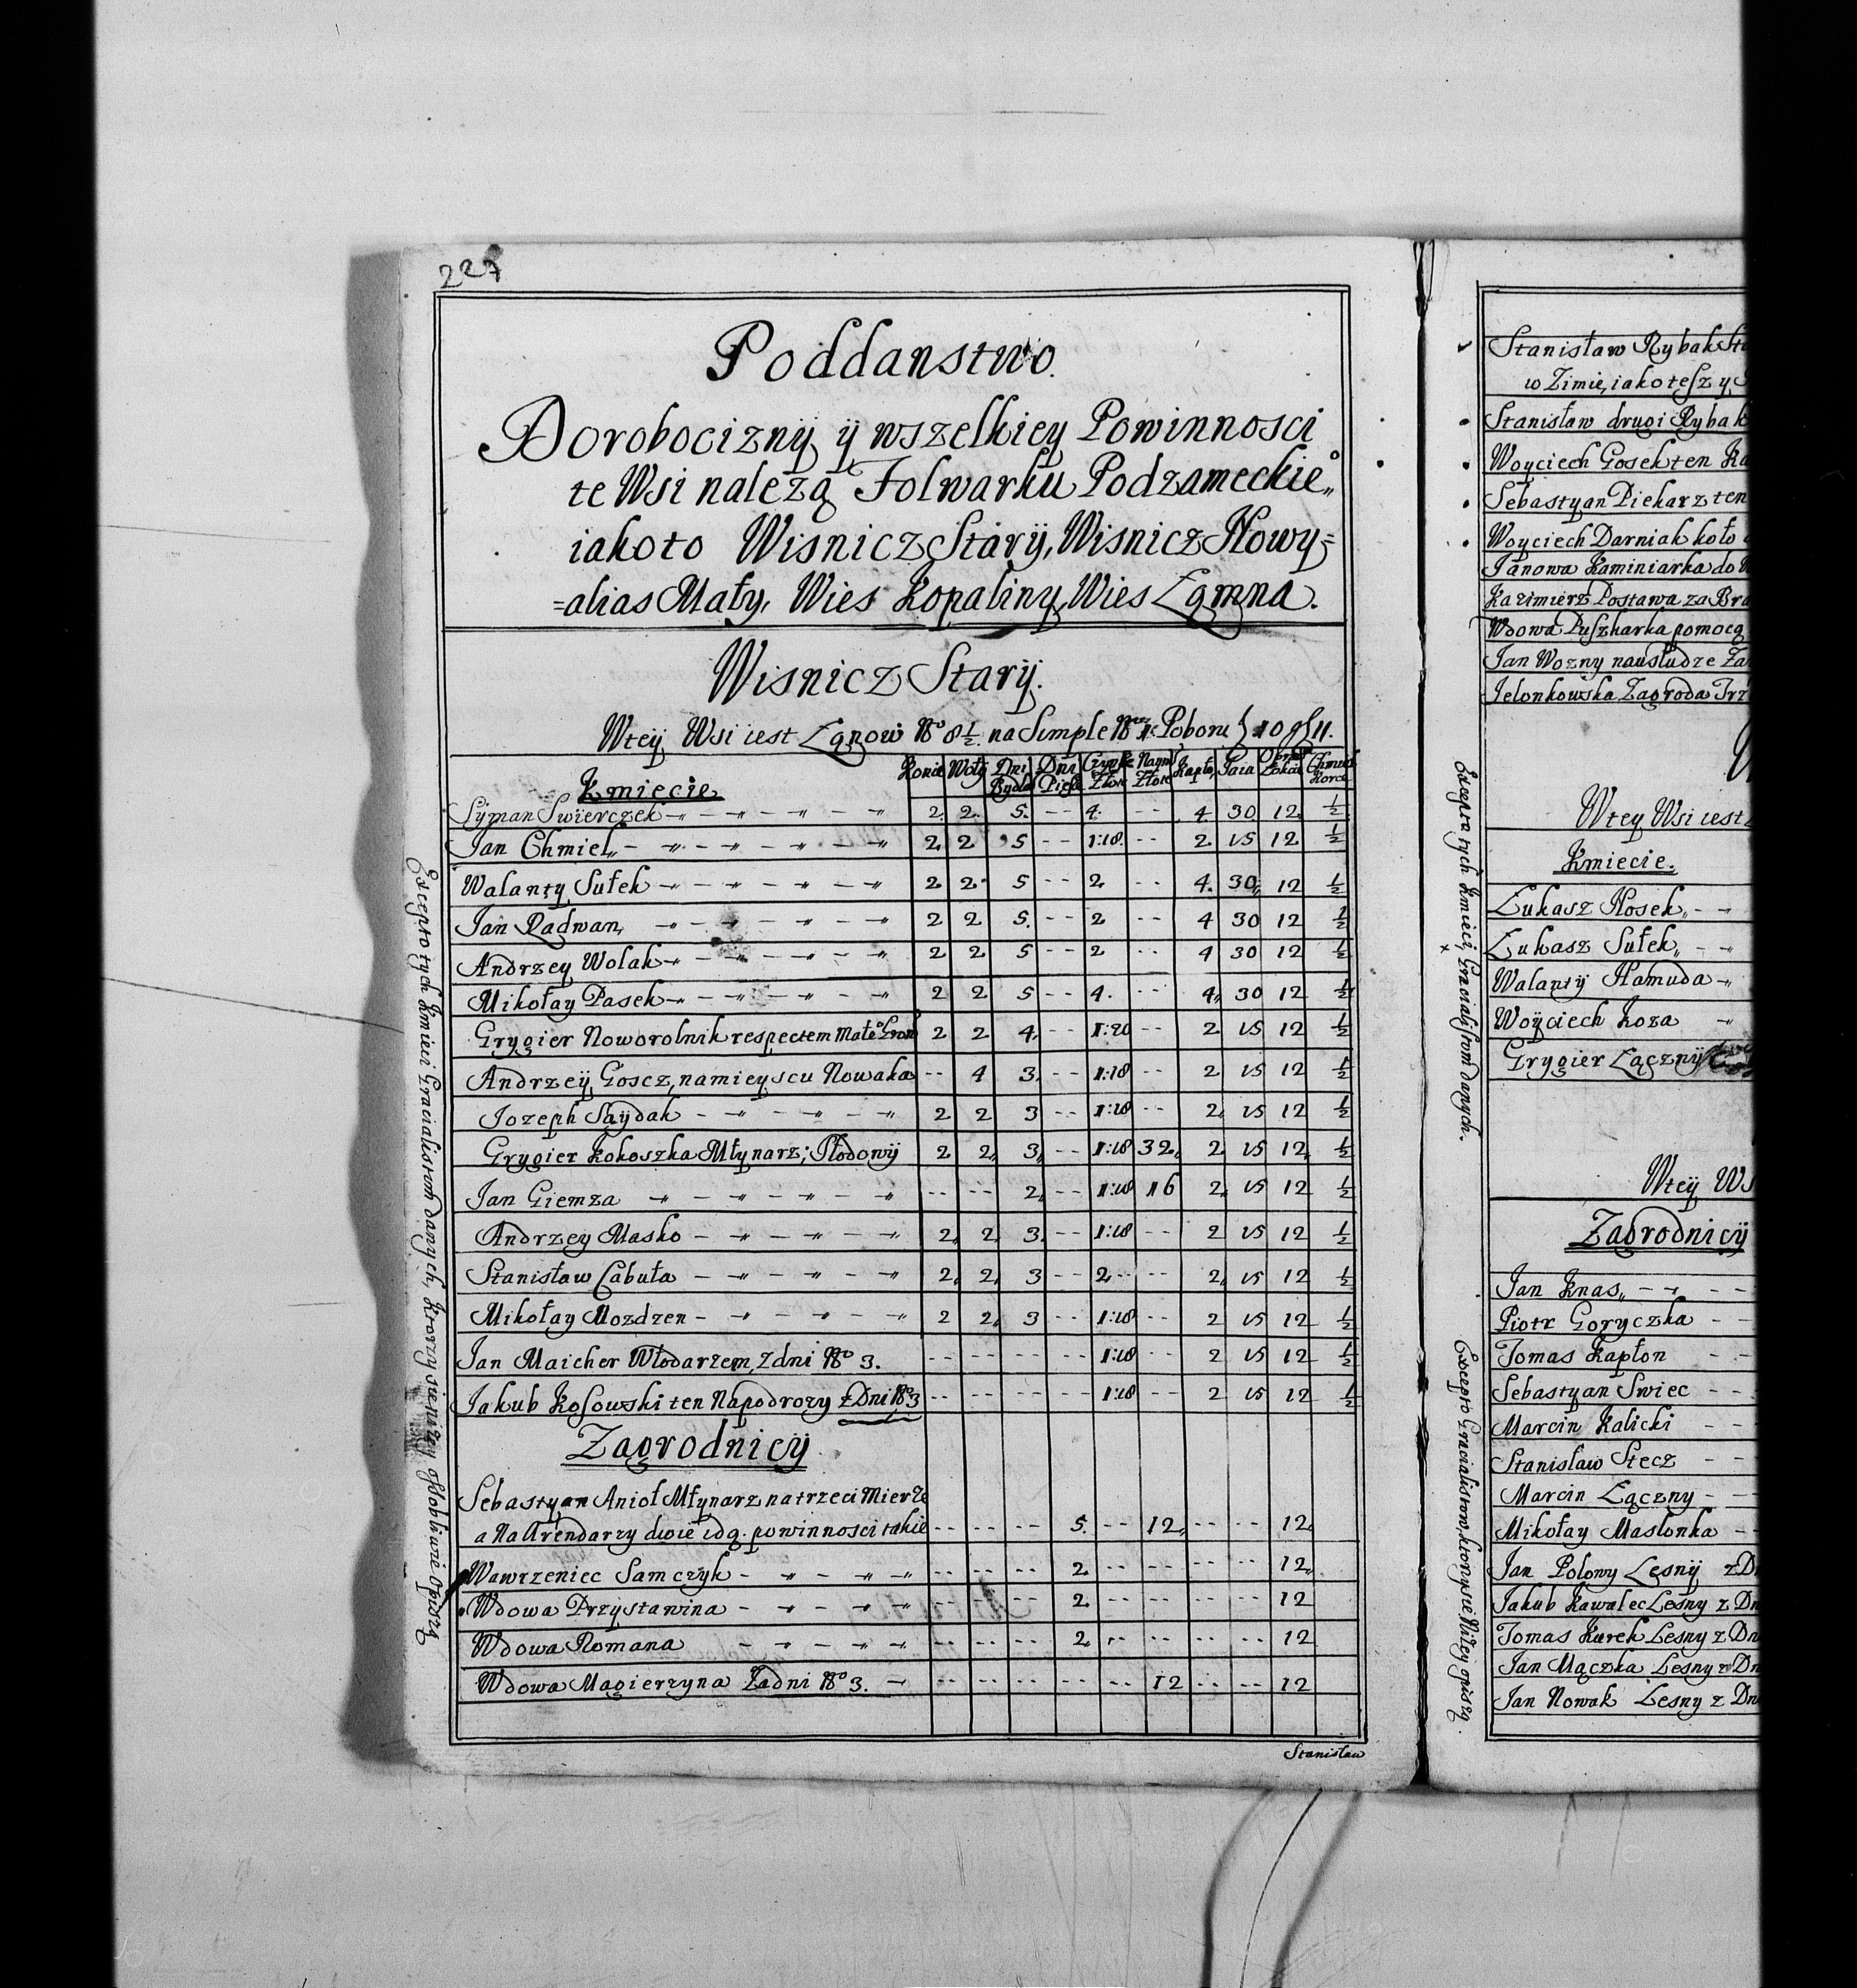 227
Poddanstwo.
Dorobocizny ÿ wszelkiey Powinnosci
te Wsi należą Folwarku Podzameckie°„
iakoto Wisnicz Starÿ, Wisnicz Nowy=
=alias Mały, Wies Kopaliny, Wies Łomna.
Wisnicz Starÿ.
Wteÿ Wsi iest Łanow N° 8½ na Simple Poboru 10 11.
Kmiecie Konie Woły Dni Bydłe Dni Piesze Czynsz Złote Naym Złote Kapło Jaia Łokcie Chmiel Korce
Sÿman Swierczek 2. 2. 5. -- 4. -- 4 30 12 ½
Jan Chmiel„ 2 2 5 -- 1:18. -- 2 15 12 ½
Walanty Sułek 2 2 5 -- 2 -- 4. 30 12 ½
Jan Radwan, 2 2 5. -- 2 -- 4 30 12 ½
Andrzey Wolak 2 2 5 -- 2 -- 4 30 12 ½
Mikołay Pasek 2 2 5 -- 4. -- 4 30 12 ½
Grygier Noworolnik respectem Małe° Gron 2 2 4 -- 1:20 -- 2 15 12 ½
Andrzeÿ Goscz, namieyscu Nowaka -- 4 3. -- 1:18 -- 2 15 12 ½
Jozeph Saÿdak 2 2 3 -- 1:18 -- 2 15 12 ½
Grygier Kokoszka Młynarz; Płodowÿ 2 2 3 -- 1:18 32 2 15 12 ½
Jan Giemza -- -- 2 -- 1:18 16 2 15 12 ½
Andrzey Masko 2 2 3. -- 1:18 -- 2 15 12 ½
Stanisław Cabuła 2 2 3 -- 2 -- 2 15 12 ½
Mikołay Mozdzen 2 2 3 -- 1:18 -- 2 15 12 ½
Jan Maicher Włodarzem, Zdni N° 3. -- -- -- -- 1:18 -- 2 15 12 ½
Jakub Kosowski ten Napodrozy z Dni N° 3 -- -- -- -- 1:18 -- 2 15 12 ½
Zagrodnicÿ
Sebastyan Anioł Młynarz natrzeci Mierze
a Na Arendarzy dwie idą. powinnosci takie -- -- -- 5. -- 12 -- -- 12
Wawrzeniec Samczyk -- -- -- 2. -- -- -- -- 12
Wdowa Przystawina -- -- -- 2. -- -- -- -- 12
Wdowa Romana -- -- -- 2. -- -- -- -- 12
Wdowa Magierzyna Zadni N° 3. -- -- -- -- -- 12 -- -- 12
Stanisław
Excepto tych Kmieci Gracialistom danych, Ktorzy się niżey opiszą
Stanisław Rybak
w Zimie, iakotesz y
Stanisław drugi Rybak
Woyciech Gosek ten
Sebastyan Piekarz ten
Woyciech Darniak koło
Janowa Kaminiarka do
Kazimierz Postawa za
Wdowa Puszkarka pomocą
Jan Wozny nausłudze
Jelonkowska Zagroda
Wtey Wsi iest
Kmiecie.
Łukasz Nosek„
Łukasz Sułek„
Walantÿ Hamuda
Woÿciech Koza
Grygier Łącznÿ
Excepto tych Kmieci, Gracialistom danych.
Wteÿ
Zagrodnicÿ
Jan Knas„
Piotr Goryczka
Tomas Kapłon
Sebastyan Swiec
Marcin Kalicki
Stanislaw Stecz
Marcin Łączny
Mikołay Maslonka
Jan Polowy Lesnÿ
Jakub Kawalec Lesny z
Tomas Kurek Lesny z
Jan Mączka Lesny z
Jan Nowak Lesny z
Excepto Gracialistow, ktorzy się Niżey opiszą.